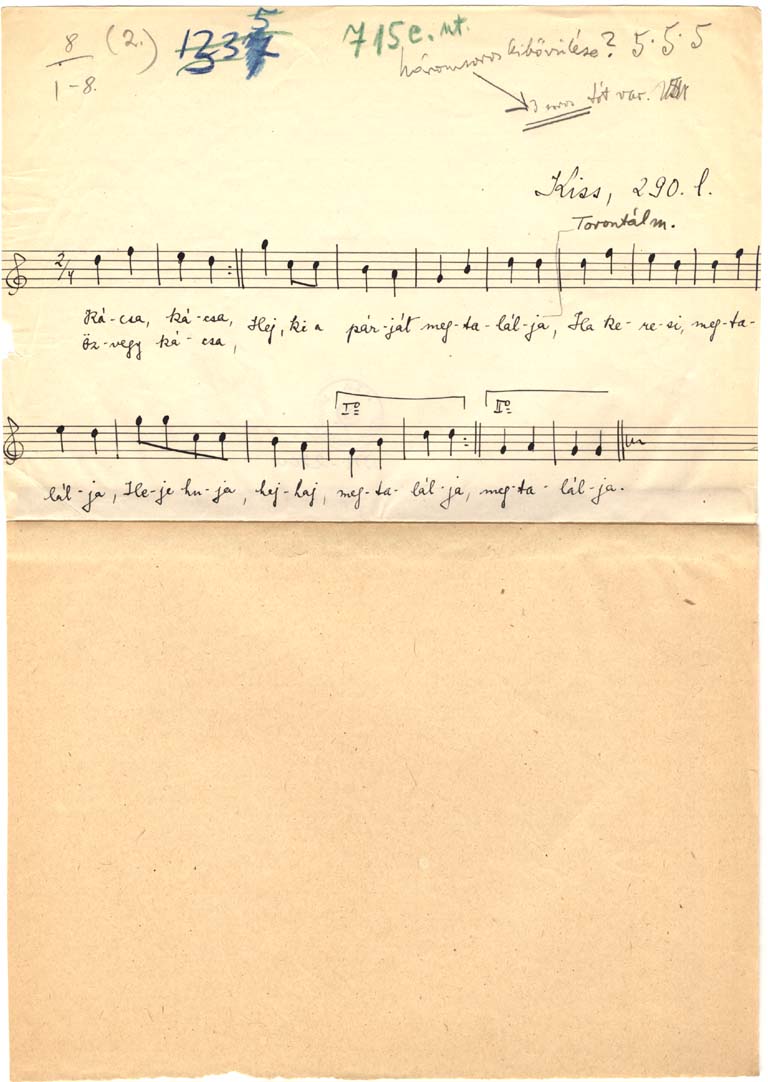 8 (2.)
1-8.
5
715e. nt.
háromsoros kibővülése? 5. 5. 5
3 soros tót var.
Kiss, 290. l.
Torontálm.
2/4
Ká-csa, ká-csa, Hej, ki a pár-ját meg-ta-lál-ja, Ha ke-re-si, meg-ta-
Öz-vegy ká-csa,
I⁰ II⁰
lál-ja, He-je hu-ja, hej-haj, meg-ta-lál-ja, meg-ta-lál-ja.